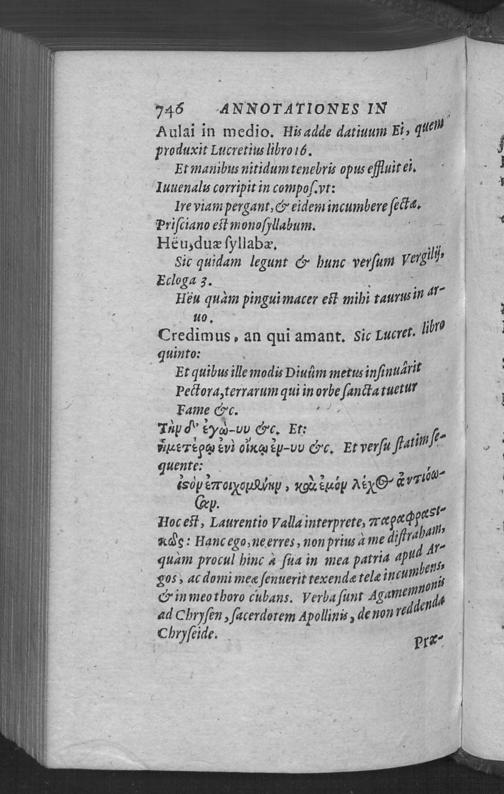 746 ANNOTATIONES IN
Aulai in medio. His adde datiuum Ei, quem
produxit Lucretius libro 16.
Et manibus nitidum tenebris opus effluit ei.
Iuuenalis corripit in compos. vt:
Ire viam pergant, & eidem incumbere sectæ.
Prisciano est monosyllabum.
Hëu, duæ syllabæ.
Sic quidam legunt & hunc versum Vergilij,
Ecloga 3.
Hëu quàm pingui macer est mihi taurus in ar-
uo.
Credimus, an qui amant. Sic Lucret. libro
quinto:
Et quibus ille modis Diuûm metus insinuârit
Pectora, terrarum qui in orbe sancta tuetur
Fame &c.
Τὴν δ' ἐγὼ-υυ &c. Et:
ἡμετέρῳ ἐνὶ οἴκῳ ἐν-υυ &c. Et versu statim se-
quente:
ἱσὸν ἐποιχομένην, καὶ ἐμὸν λέχος ἀντιόω-
σαν.
Hoc est, Laurentio Valla interprete, παραφρασι-
κῶς: Hanc ego, ne erres, non prius à me distraham,
quàm procul hinc à sua in mea patria apud Ar-
gos, ac domi meæ senuerit texendæ telæ incumbens,
& in meo thoro cubans. Verba sunt Agamemnonis
ad Chrysen, sacerdotem Apollinis, de non reddenda
Chryseide.
Præ-